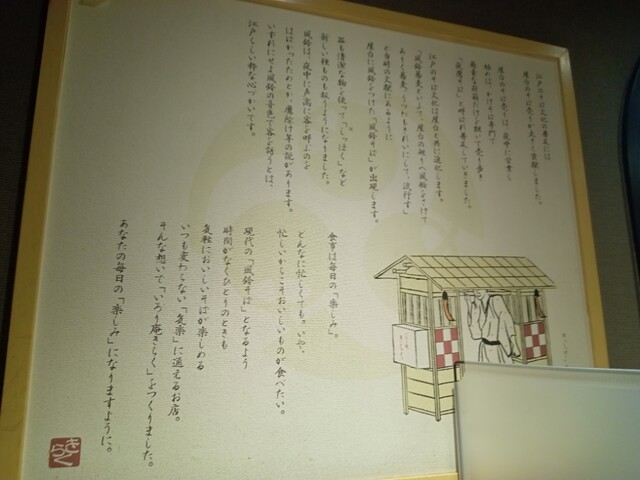 江戸のそば文化の普及には
屋台のそば売りが大きく貢献しました。
屋台のそば売りは、夜中に営業し
始めは、かけそば専門で
簡素な荷箱だけを担いで売り歩き
「夜鷹そば」と呼ばれ普及していきました。
江戸のそば文化は屋台と共に進化します。
「風鈴蕎麦といいて、屋台の廻りへ風鈴をさげて
ありく蕎麦、うつわもきれいにして、流行す」
と当時の文献にあるように
屋台に風鈴をつけた「風鈴そば」が出現します。
器も清潔な物を使って「しっぽく」など
新しい種ものも扱うようになりました。
風鈴は、夜中に声高に客を呼ぶのを
はばかったためとか、魔除け等の説があります。
いずれにせよ風鈴の音色で客を誘うとは、
江戸らしい粋な心づかいです。
食事は毎日の「楽しみ」。
どんなに忙しくても。いや、
忙しいからこそおいしいものが食べたい。
現代の「風鈴そば」となるよう
時間がなくひとりのときも
気軽においしいそばが楽しめる
いつも変わらない「気楽」に通えるお店。
そんな想いで「いろり庵きらく」をつくりました。
あなたの毎日の「楽しみ」になりますように。
きらく